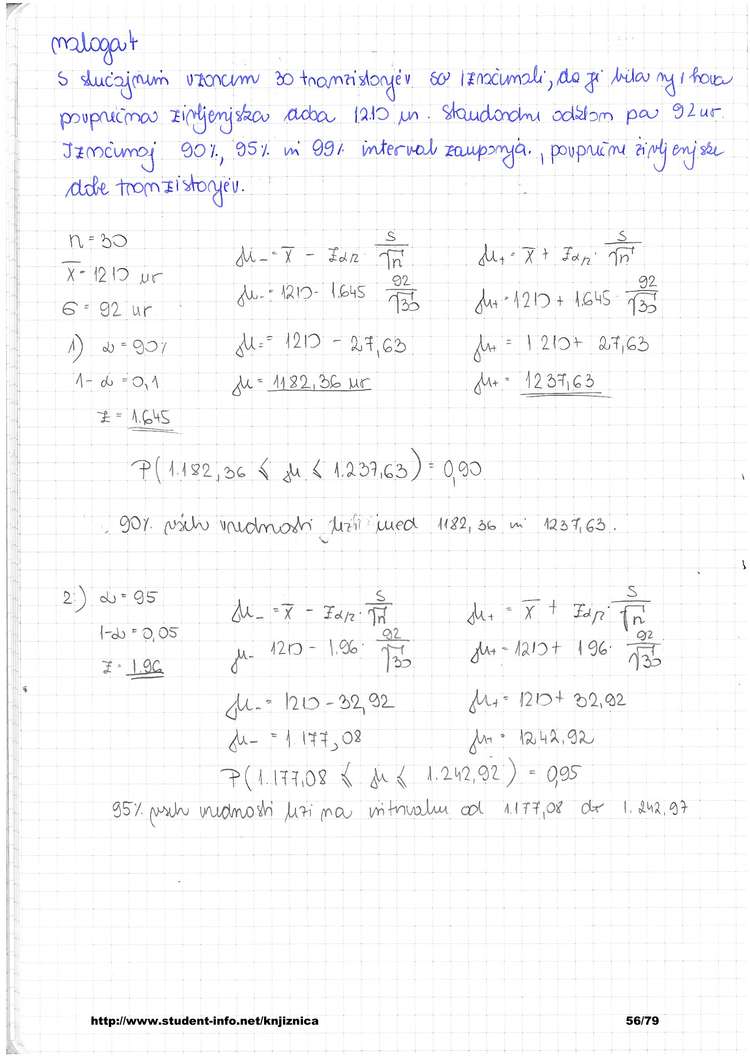 naloga 4
S slučajnim vzorcem 30 tranzistorjev so izračunali, da je bila njihova
povprečna življenjska doba 1210 ur. Standardni odklon pa 92 ur.
Izračunaj 90%, 95% in 99% interval zaupanja, povprečne življenjske
dobe tranzistorjev.
n = 30
x̅ = 1210 ur
σ = 92 ur
1) α = 90%
1-α = 0,1
z = 1.645
μ- = x̅ - zα/2 · s/√n
μ- = 1210 - 1.645 · 92/√30
μ- = 1210 - 27,63
μ = 1182,36 ur
μ+ = x̅ + zα/2 · s/√n
μ+ = 1210 + 1.645 · 92/√30
μ+ = 1210 + 27,63
μ+ = 1237,63
P(1.182,36 ≤ μ ≤ 1.237,63) = 0,90
90% vseh vrednosti leži med 1182,36 in 1237,63.
2.) α = 95
1-α = 0,05
z = 1.96
μ- = x̅ - zα/2 · s/√n
μ- 1210 - 1.96 · 92/√30
μ- = 1210 - 32,92
μ- = 1 177,08
μ+ = x̅ + zα/2 · s/√n
μ+ = 1210 + 1 96 · 92/√30
μ+ = 1210 + 32,92
μ+ = 1242,92
P(1.177,08 ≤ μ ≤ 1.242,92) = 0,95
95% vseh vrednosti leži na intervalu od 1.177,08 do 1.242,97
http://www.student-info.net/knjiznica
56/79